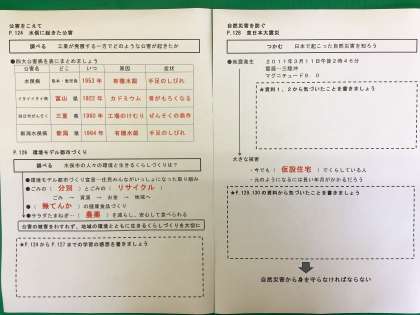 公害をこえて
P.124 水俣に起きた公害
調べる 工業が発展する一方でどのような公害が起きたか
●四大公害病を表にまとめましょう
公害名 どこ いつ 原因 症状
水俣病 熊本・鹿児島 1953年 有機水銀 手足のしびれ
イタイイタイ病 富山 県 1922年 カドミウム 骨がもろくなる
四日市ぜんそく 三重 県 1960年 工場のけむり ぜんそくの発作
新潟水俣病 新潟 県 1964年 有機水銀 手足のしびれ
P.126 環境モデル都市づくり
調べる 水俣市の人々の環境と生きるくらしづくりは?
●環境モデル都市づくり宣言…住民みんながいっしょになった取り組み
●ごみの( 分別 )とごみの( リサイクル )
ごみ → 資源 → お金 → 地域へ
●( 無てんか )の健康食品づくり
●サラダたまねぎ…( 農薬 )を減らし、安心して食べられる
公害の被害をわすれず、地域の環境とともに生きるくらしづくりを大切に
★P.124からP.127までの学習の感想を書きましょう
自然災害を防ぐ
P.128 東日本大震災
つかむ 日本で起こった自然災害を知ろう
●地震発生 2011年3月11日午後2時46分
震源…三陸沖
マグニチュード9.0
★資料1、2から気づいたことを書きましょう
大きな被害
・今でも( 仮設住宅 )でくらしている人
・元のようになるには長い年月がかかるだろう
★P.129,130の資料から気づいたことを書きましょう
自然災害から身を守らなければならない